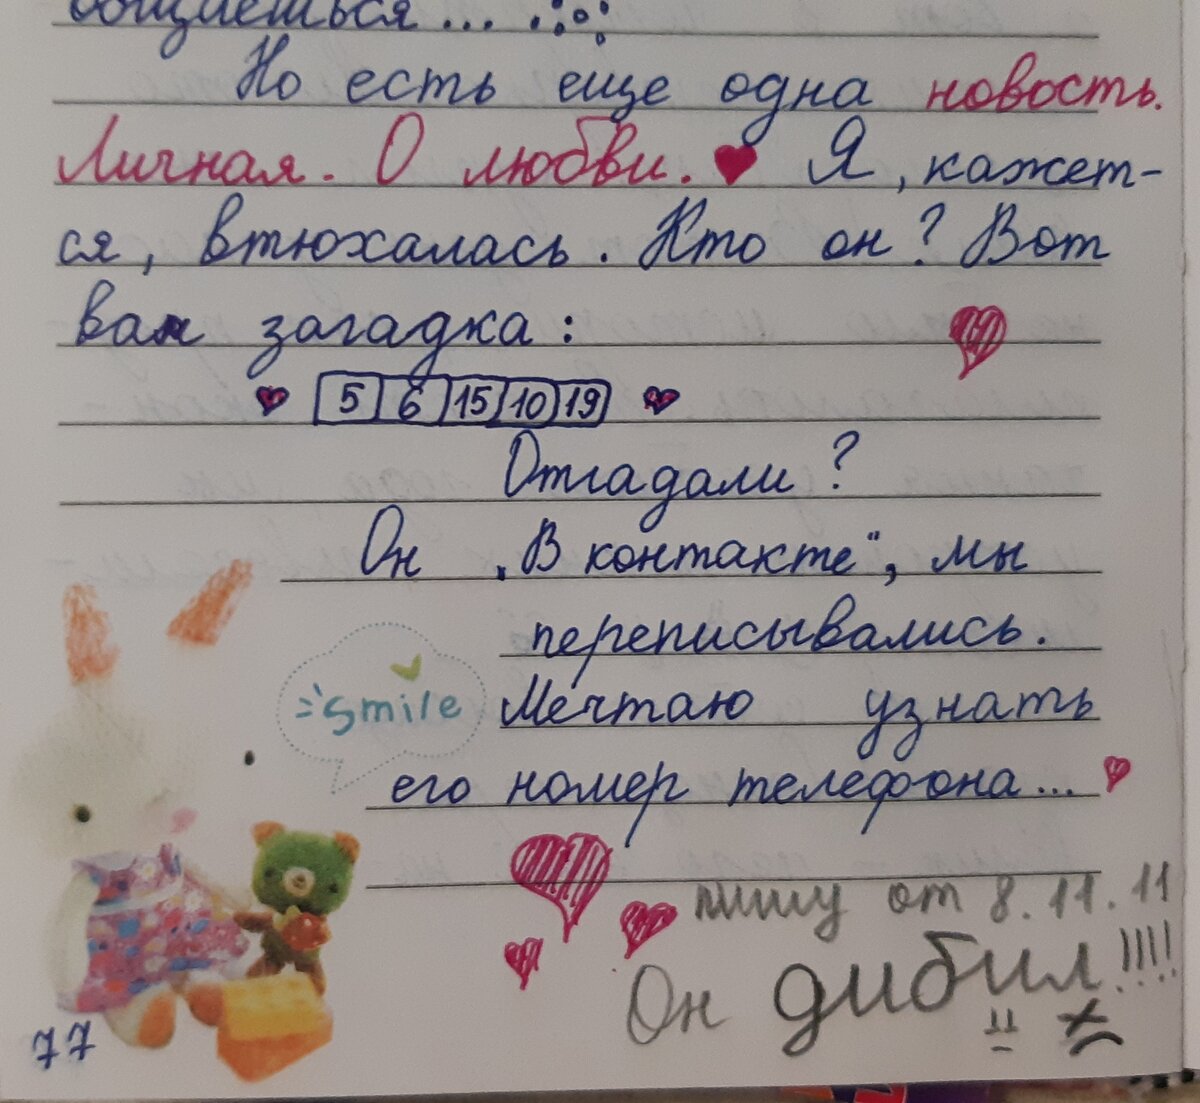 общаеться...
Но есть еще одна новость.
Личная. О любви. Я, кажет-
ся, втюхалась. Кто он? Вот
вам загадка:
5 6 15 10 19
Отгадали?
Он „В контакте", мы
переписывались.
smile
Мечтаю узнать
его номер телефона...
пишу от 8.11.11
Он дибил!!!!
77